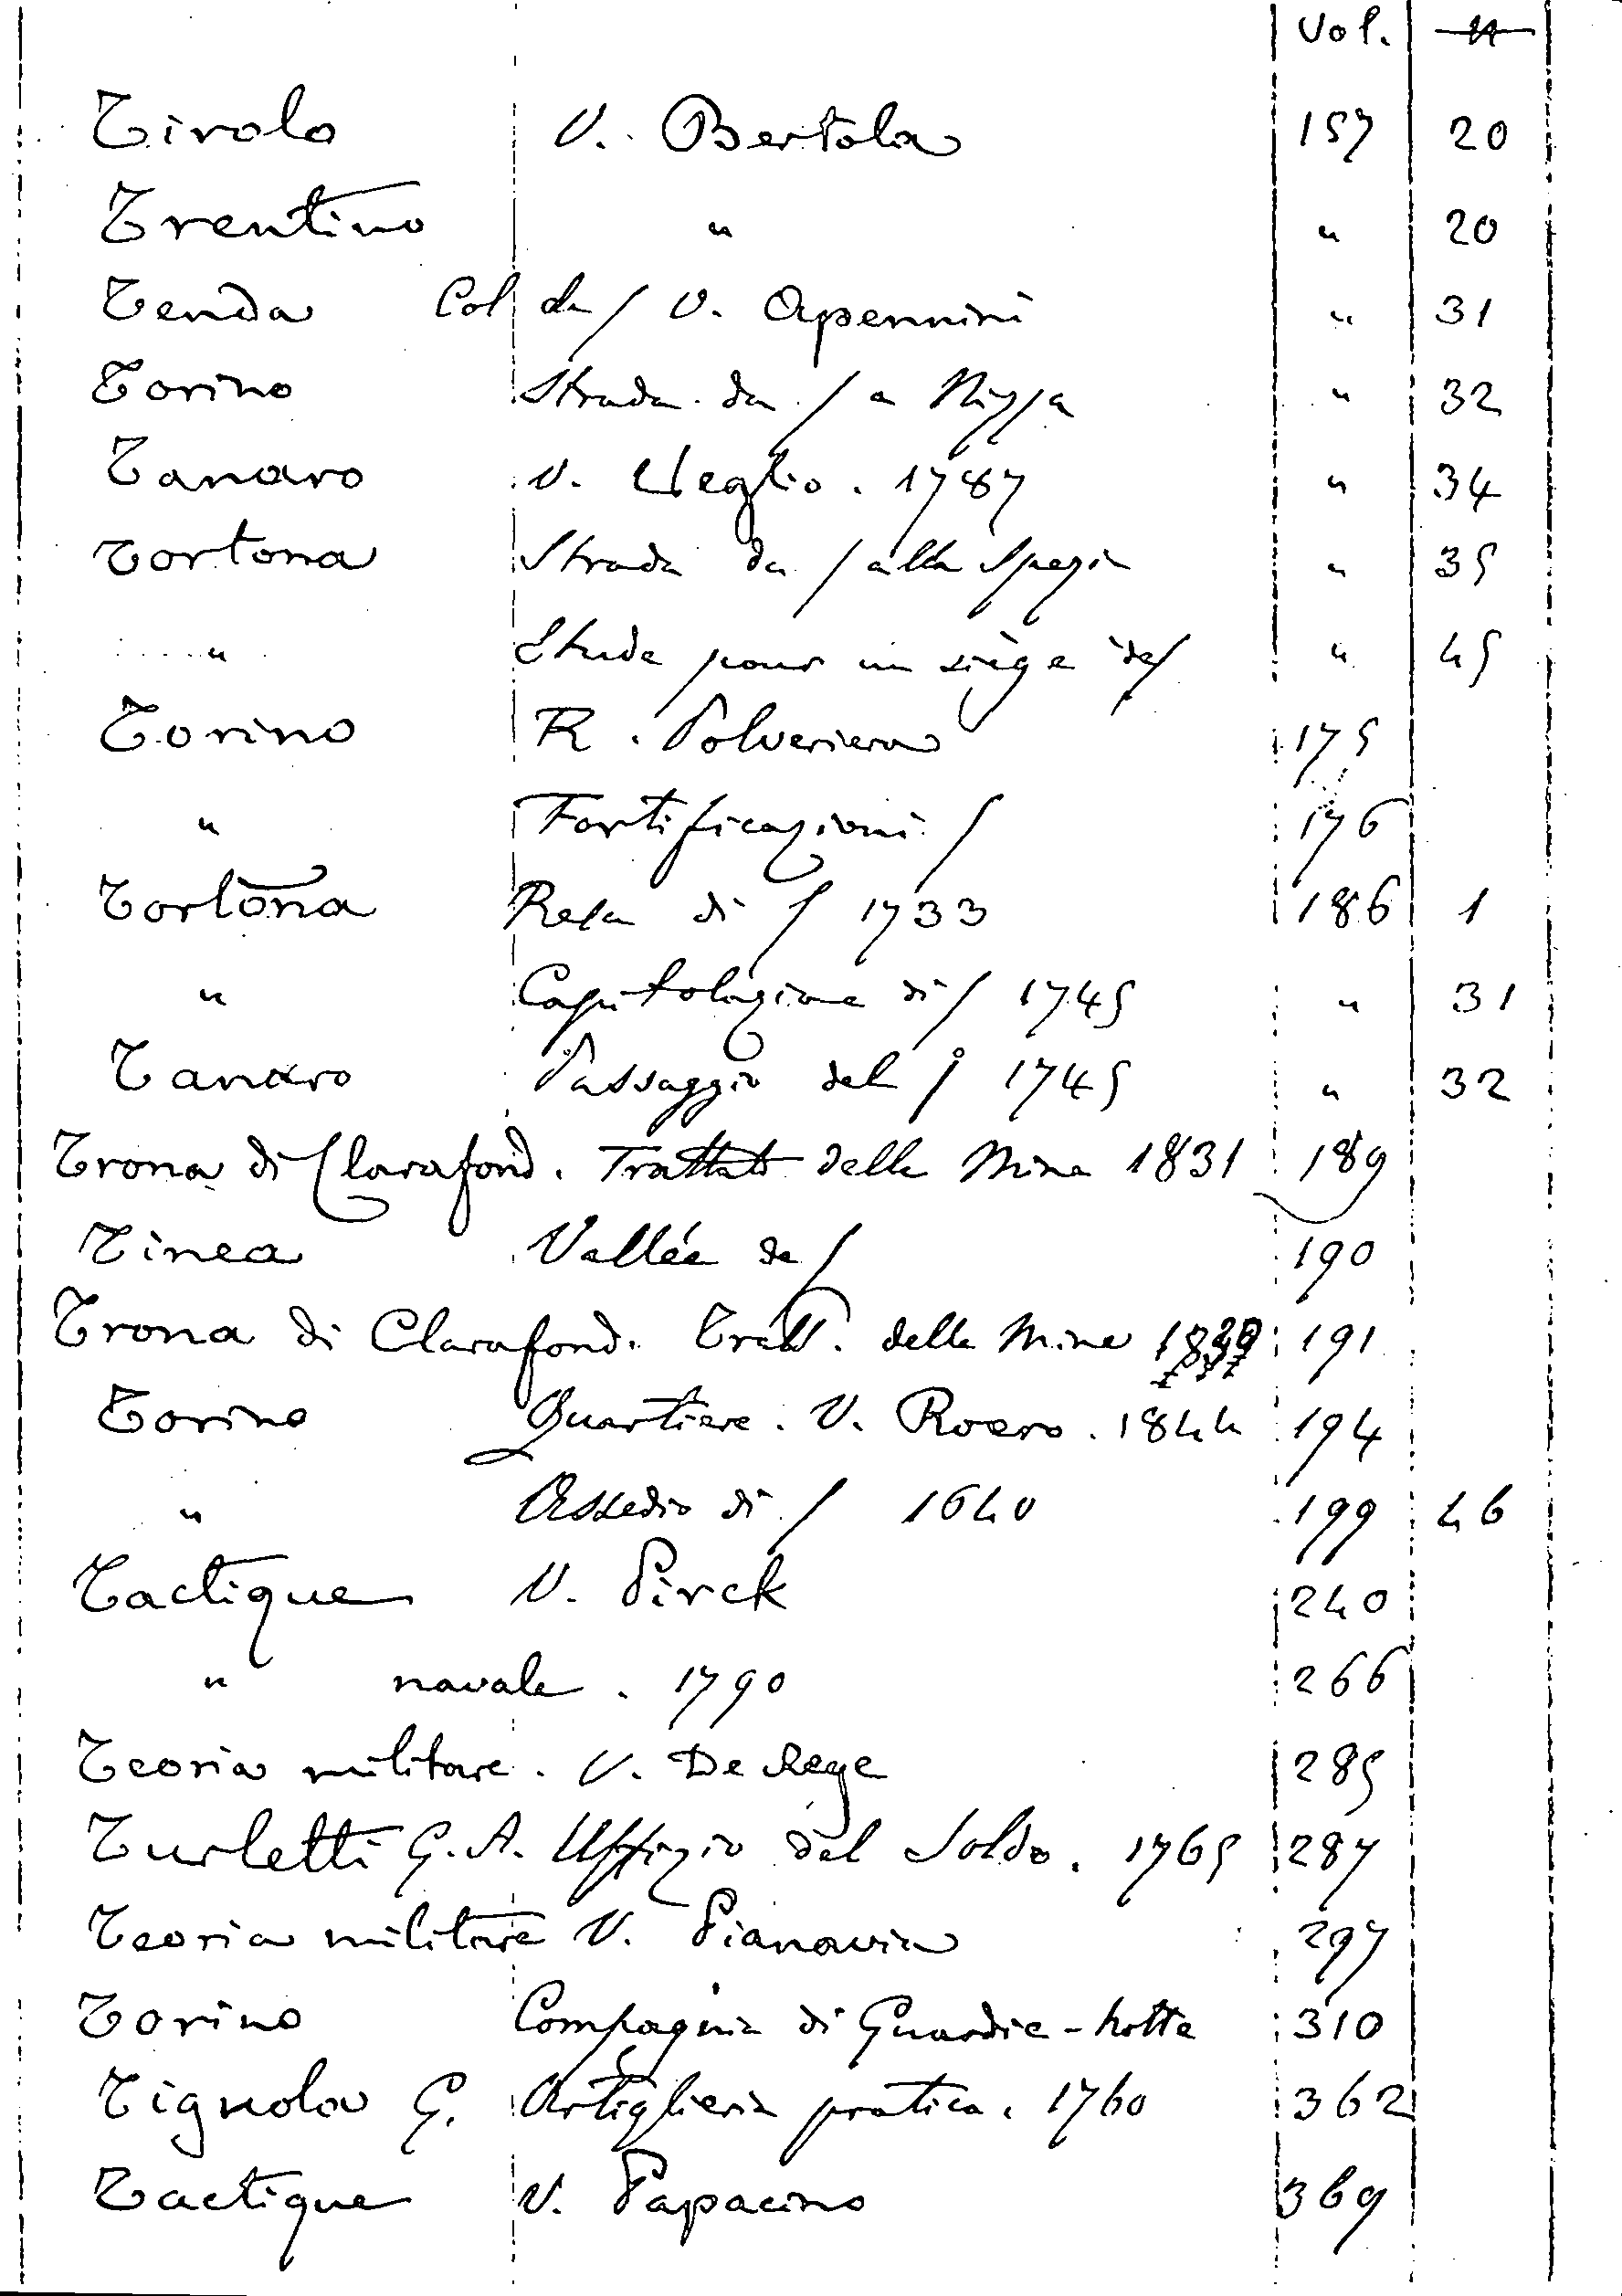 Vol. n
Tirolo V. Bertola 157 20
Trentino " " 20
Tenda Col di / V. Apennini " 31
Torino Strada da / a Nizza " 32
Tanaro V. Veglio. 1787 " 34
Tortona Strada da / alla Spezia " 35
" Etude pour un siège de / " 45
Torino R. Polveriera 175
" Fortificazioni / 176
Tortona Resa di / 1733 186 1
" Capitolazione di / 1745 " 31
Tanaro Passaggio del / 1745 " 32
Trona di Clarafond. Trattato delle Mine 1831 189
Tinea Vallée de / 190
Trona di Clarafond. Tratt. delle Mine 191
Torino Quartiere. V. Roero. 1844 194
" Assedio di / 1640 199 46
Tactique V. Pirck 240
" navale. 1790 266
Teoria militare. V. De Rege 285
Turletti G. A. Uffizio del Soldo. 1765 287
Teoria militare V. Pianavia 297
Torino Compagnia di Guardie-notte 310
Tignola G. Artiglieria pratica. 1760 362
Tactique V. Papacino 369